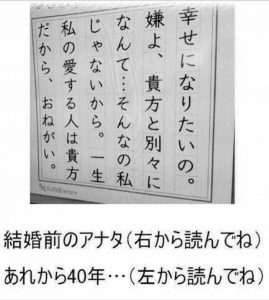 幸せになりたいの。
嫌よ、貴方と別々に
なんて…そんなの私
じゃないから。一生
私の愛する人は貴方
だから、おねがい。
結婚前のアナタ（右から読んでね）
あれから40年…（左から読んでね）